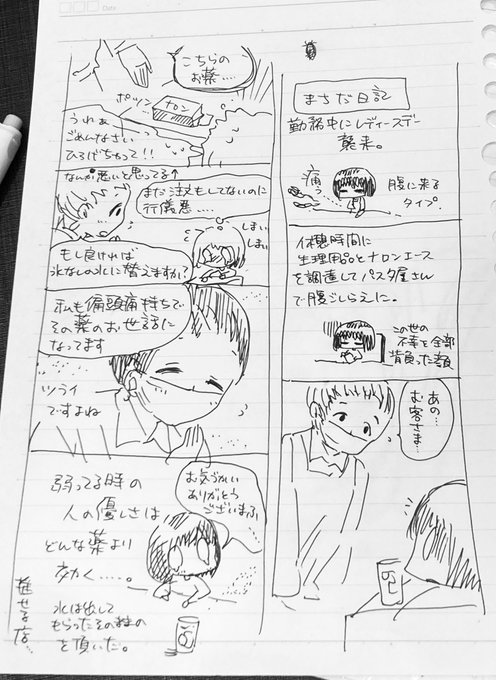 Date
まちだ日記
勤務中にレディースデー
襲来。
痛っ
腹に来る
タイプ
休憩時間に
生理用品とナロンエース
を調達してパスタ屋さん
で腹ごしらえに。
この世の
不幸を全部
背負った顔
あの…
お客さま…
こちらの
お薬…
ポツン
ナロン
うわぁ
ごめんなさい
ひろげちゃって!!
なんか悪いと思ってる↑
まだ注文もしてないのに
行儀悪…
しまい
しまい
もし良ければ
氷なしの水に替えますか?
私も偏頭痛持ちで
その薬のお世話に
なってます
ツライ
ですよね
お気づかい
ありがとう
ございまふ
弱ってる時の
人の優しさは
どんな薬より
効く……。
水は出して
もらったその
を頂いた。
推せる店